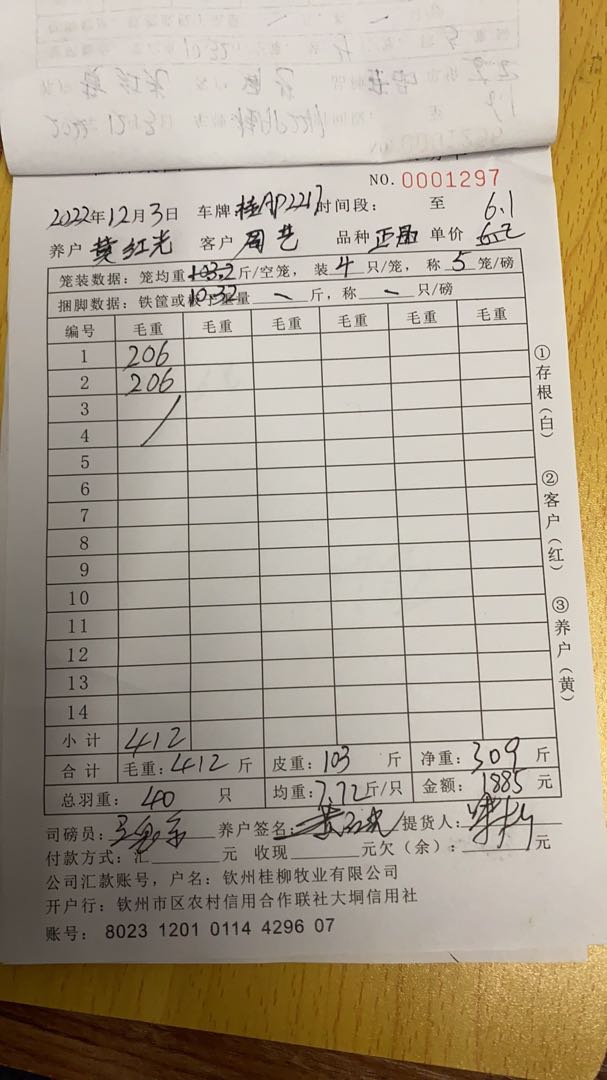 NO. 0001297
2022年12月3日 车牌 桂AP2217 时间段： 至 6.1
养户 黄红光 客户 周艺 品种 正番 单价
笼装数据：笼均重 斤/空笼，装 4 只/笼，称 5 笼/磅
捆脚数据：铁筐或 10.32 斤，称 只/磅
编号 毛重 毛重 毛重 毛重 毛重 毛重
1 206
2 206
3
4
5
6
7
8
9
10
11
12
13
14
小计 412
合计 毛重：412 斤 皮重：103 斤 净重：309 斤
总羽重：40 只 均重：7.72斤/只 金额：1885 元
司磅员： 养户签名： 黄红光 提货人：
付款方式：汇 元 收现 元欠（余）： 元
公司汇款账号，户名：钦州桂柳牧业有限公司
开户行：钦州市区农村信用合作联社大垌信用社
账号：8023 1201 0114 4296 07
①存根（白）
②客户（红）
③养户（黄）